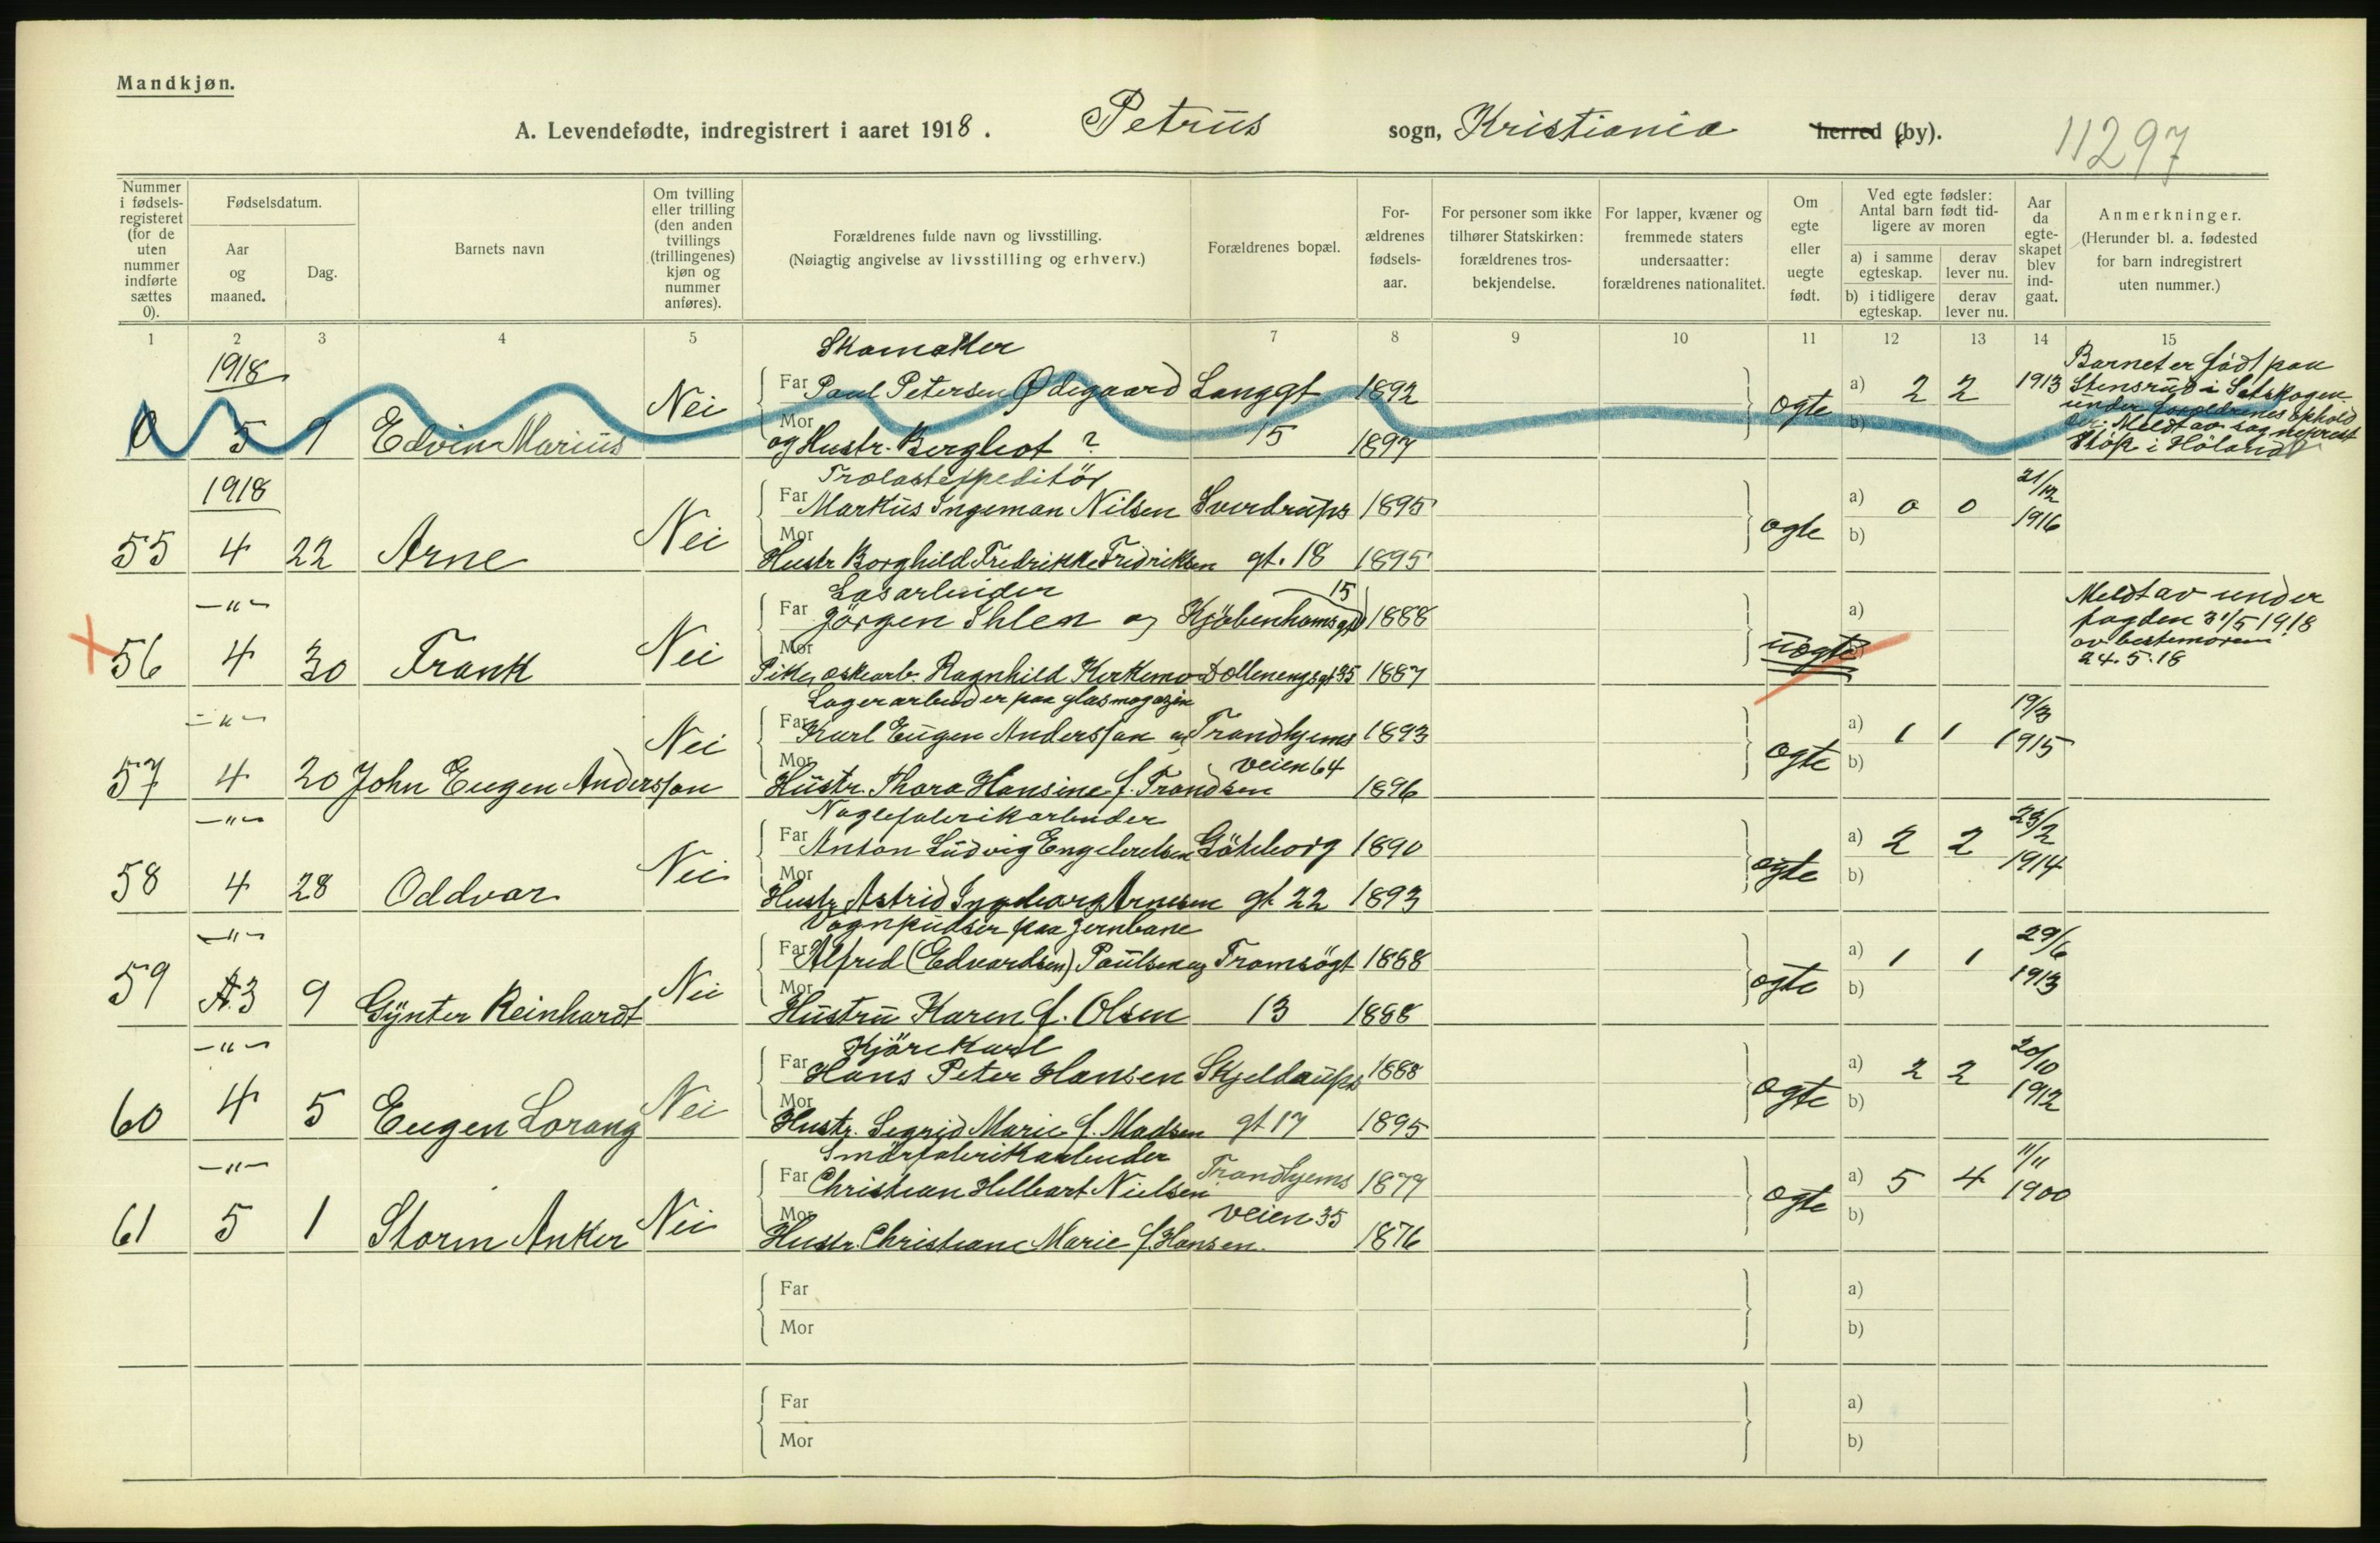 Mandkjøn.
A. Levendefødte, indregistrert i aaret 1918. Petrus sogn, Kristiania herred (by).
11297
Nummer i fødsels-registeret (for de uten nummer indførte sættes 0).
Fødselsdatum.
Aar og maaned.
Dag.
Barnets navn
Om tvilling eller trilling (den anden tvillings (trillingenes) kjøn og nummer anføres).
Forældrenes fulde navn og livsstilling.
(Nøiagtig angivelse av livsstilling og erhverv.)
Forældrenes bopæl.
For-ældrenes fødsels-aar.
For personer som ikke tilhører Statskirken: forældrenes tros-bekjendelse.
For lapper, kvæner og fremmede staters undersaatter: forældrenes nationalitet.
Om egte eller uegte født.
Ved egte fødsler: Antal barn født tid-ligere av moren
a) i samme egteskap.
derav lever nu.
b) i tidligere egteskap.
derav lever nu.
Aar da egte-skapet blev ind-gaat.
Anmerkninger.
(Herunder bl. a. fødested for barn indregistrert uten nummer.)
1 2 3 4 5 7 8 9 10 11 12 13 14 15
1918 Skomaker Barnet er født paa
Nei Far Paul Petersen Ødegaard Langgt 1892 ogte a) 2 2 1913 Stensrud i Setskogen
under forældrenes ophold
0 5 9 Edvin Marius Mor og Hustr. Bergliot ? 15 1897 b) der. Meldt av sogneprest
i Höland
1918 Far Markus Ingeman Nilsen Sverdrups 1895 ogte a) 0 0 21/12 1916
55 4 22 Arne Nei Mor Hustr Borghild Fredrikke Fridriksen gt. 18 1895 b)
—"— Lasarbeider 15 Meldt av under
Far Jörgen Ihlen og Kjöbenhavnsgt 1888 uogte a) 31/5 1918
av bestemoren
56 4 30 Frank Nei Mor Pike, Ragnhild 35 1887 24.5.18
—"— Lagerarbeider paa glasmagazin
Nei Far Karl Eugen Andersson og Trondhjems 1893 ogte a) 1 1 19/3 1915
57 4 20 John Eugen Andersson Mor Hustr. Thora Hansine f. Trondsen veien 64 1896 b)
—"— Naglefabrikarbeider
Far Anton Ludvig Engebretsen Göteborg 1890 ogte a) 2 2 23/2 1914
58 4 28 Oddvar Nei Mor Hustr Astrid Ingeborg Arnesen gt 22 1893 b)
—"— Vognpudser paa jernbane
Far Alfred (Edvardsen) Paulsen og Tromsögt 1888 ogte a) 1 1 29/6 1913
59 3 9 Gynter Reinhardt Nei Mor Hustru Karen f. Olsen 13 1888 b)
—"— Kjörekarl
Far Hans Peter Hansen 1888 ogte a) 2 2 20/10 1912
60 4 5 Eugen Lorang Nei Mor Hustr. Segrid Marie f. Madsen gt 17 1895 b)
—"— Smörfabrikarbeider
Far Christian Hilbart Nielsen Trondhjems 1879 ogte a) 5 4 11/11 1900
61 5 1 Storm Anker Nei Mor Hustr. Christiane Marie f. Hansen veien 35 1876 b)
Far a)
Mor b)
Far a)
Mor b)